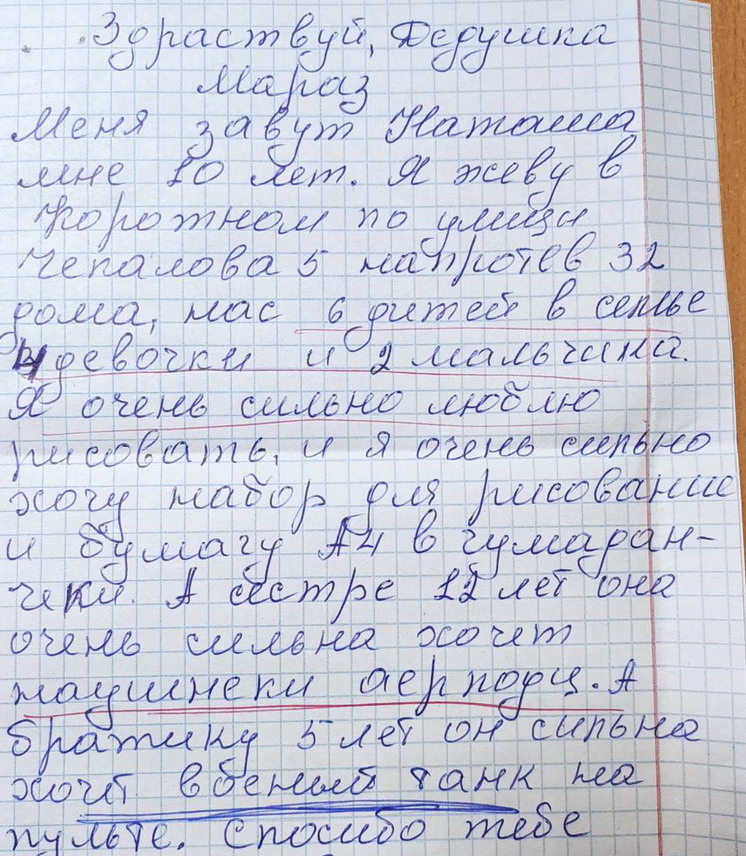 Здраствуй, Дедушка
Мараз
Меня завут Наташа
мне 10 лет. Я жеву в
Коротном по улици
Чепалова 5 напротев 32
дома, нас 6 дитей в семье
4 девочки и 2 мальчика.
Я очень сильно люблю
рисовать, и я очень сильно
хочу набор для рисование
и бумагу А4 в
А сестре 12 лет она
очень сильна хочет
наушнеки аерподц. А
братику 5 лет он сильна
хочет вбеный танк на
пульте. Спосибо тебе